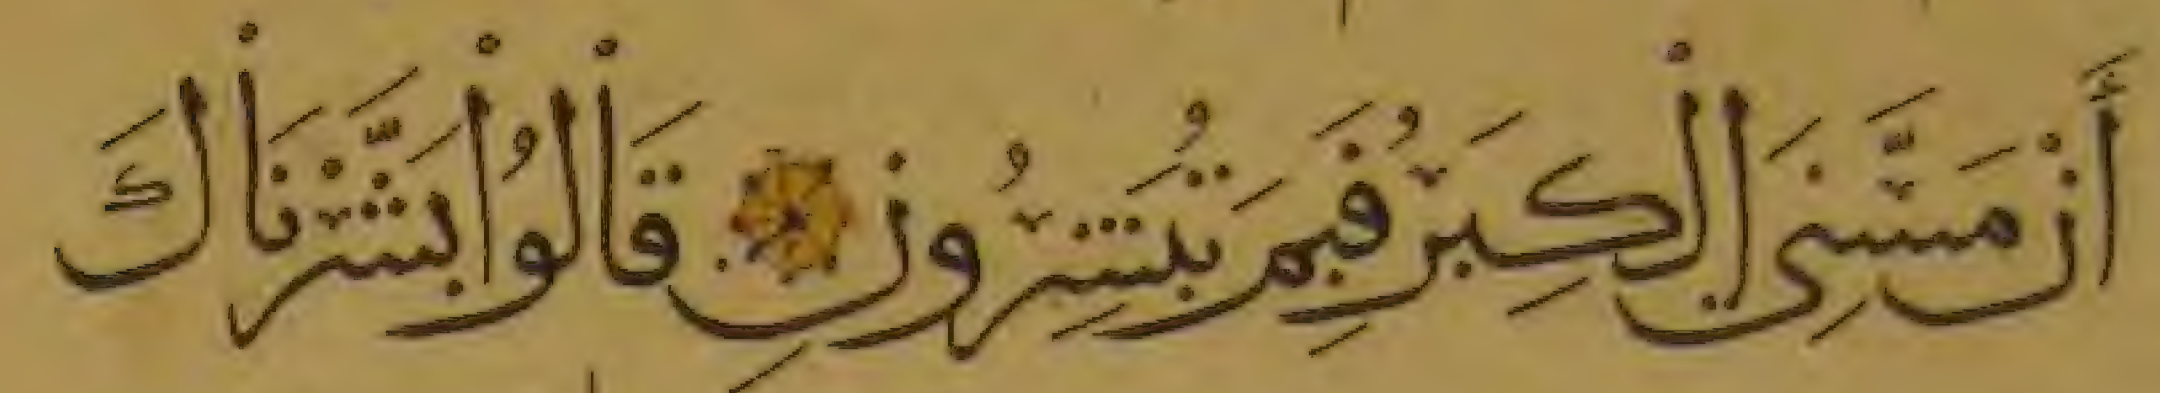 أَنْ مَسَّنِيَ الْكِبَرُ فَبِمَ تُبَشِّرُونِ قَالُوا بَشَّرْنَاكَ